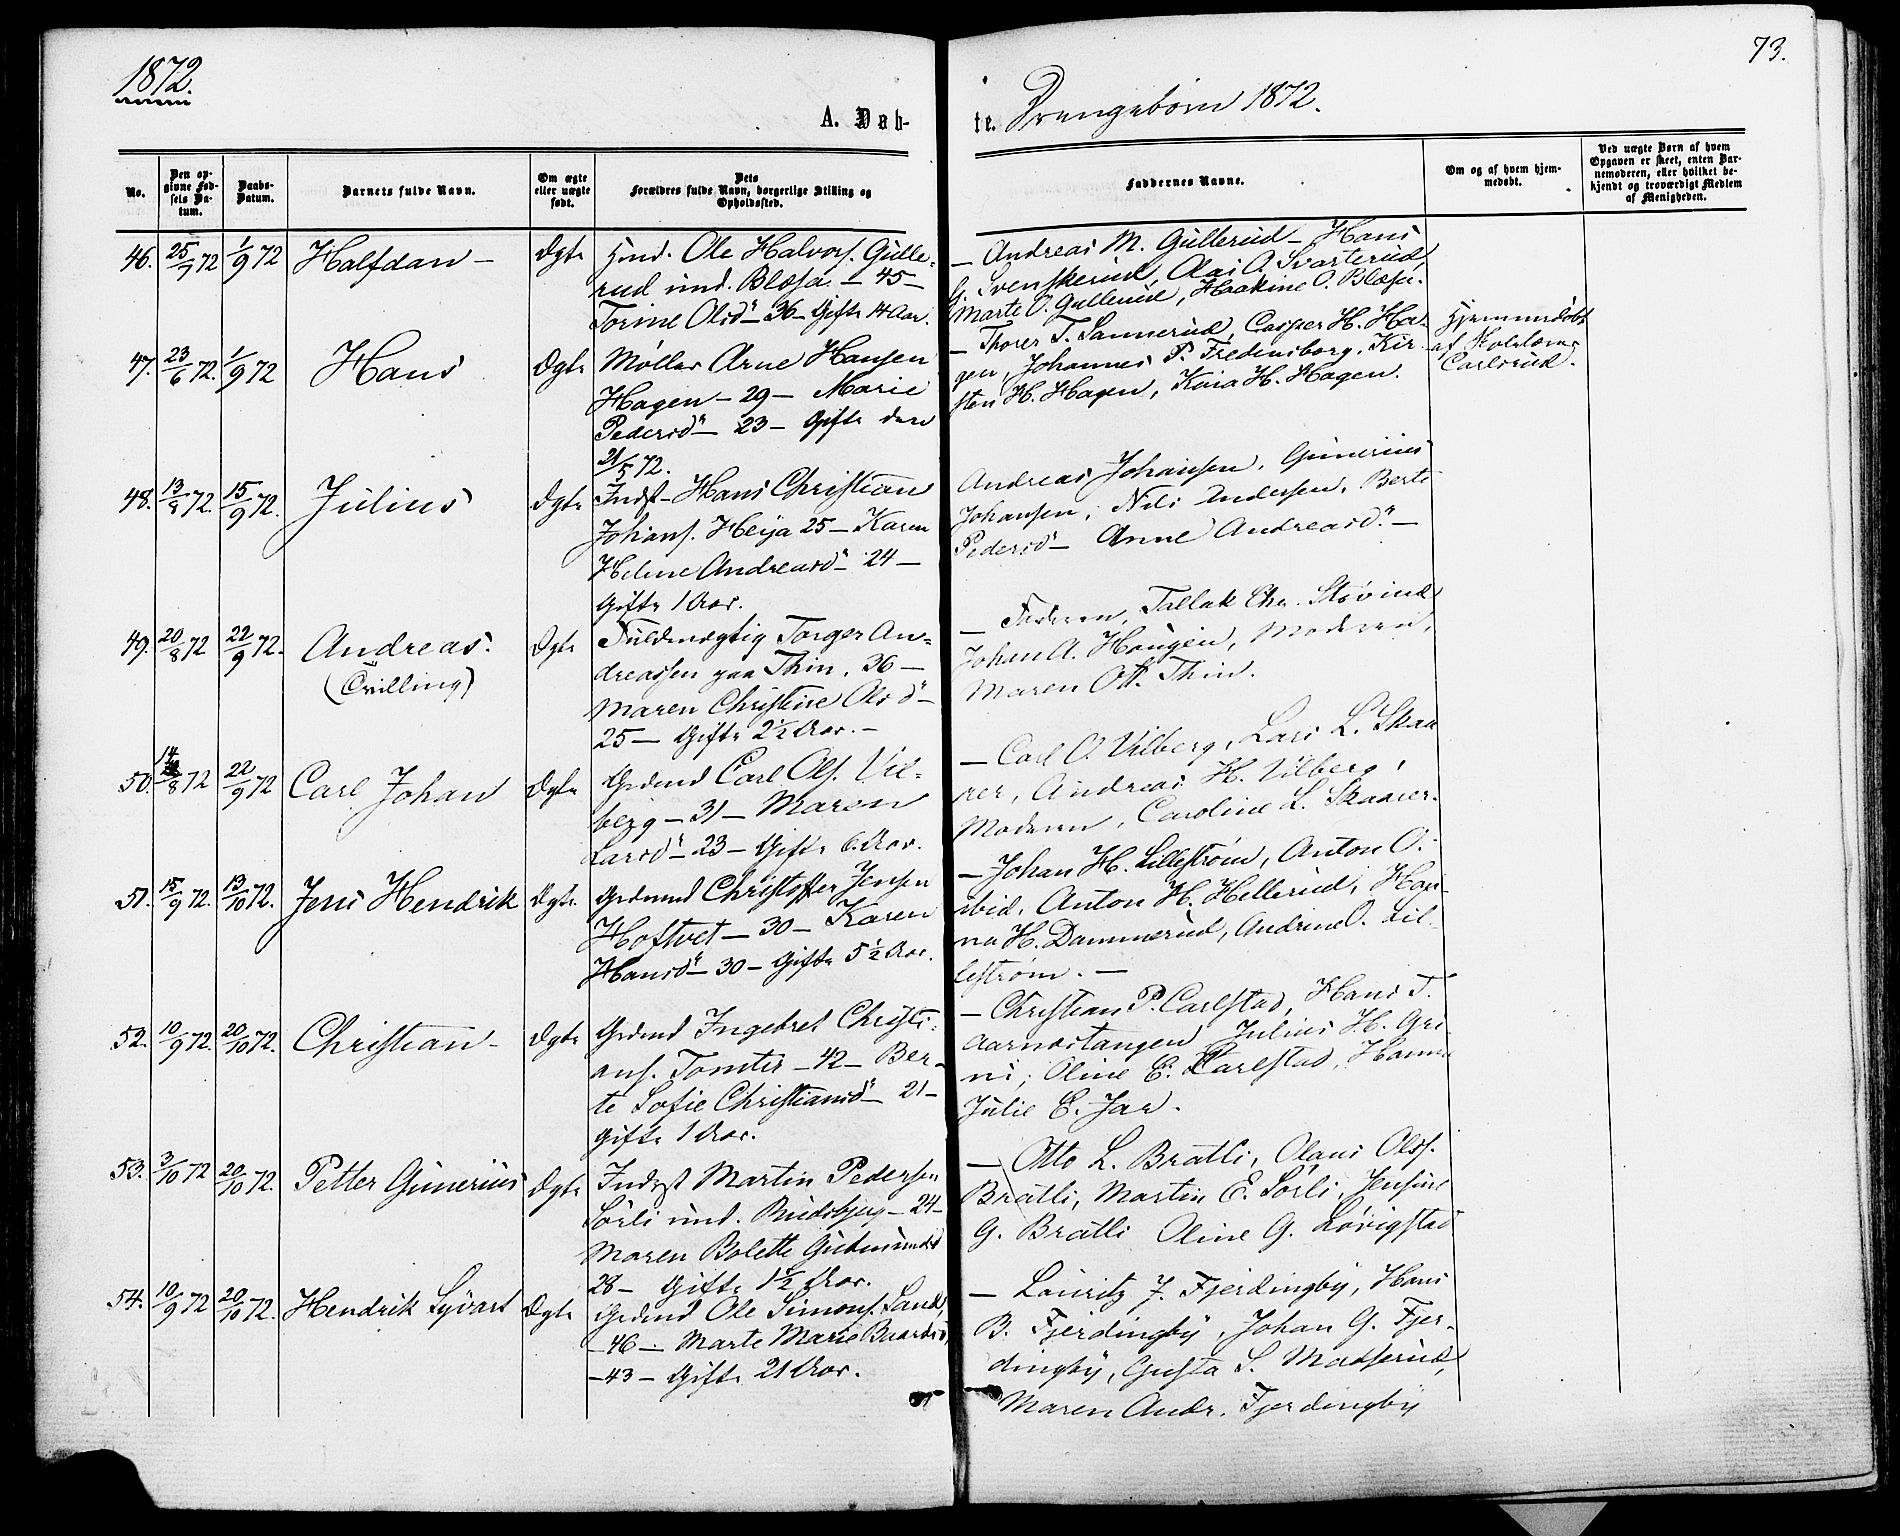 1872.
73.
A. Døb-
te. Drengebørn 1872.
No.
Den op-
givne Fød-
sels Da-
tum.
Daabs-
Datum.
Barnets fulde Navn.
Om ægte
eller uægte
født.
Dets
Forældres fulde Navn, borgerlige Stilling og
Opholdssted.
Faddernes Navne.
Om og af hvem hjem-
medøbt.
Ved uægte Børn af hvem
Opgaven er skeet, enten Bar-
nemoderen, eller hvilket be-
kjendt og troværdigt Medlem
af Menigheden.
46. 25/7 72 1/9 72 Halfdan – Ægte
Hmd. Ole Halvors. Gulle-
rud und. Blæsa – 45 –
Torine Olsd – 36 – Gifte 14 Aar.
– Andreas M. Gullerud – Hans
G. Svenskerud, Olai O. Svarterud,
Marte O. Gullerud, Haakine O. Blæsa.
47. 23/6 72. 1/9 72 Hans Ægte
Møller Arne Hansen
Hagen – 29 – Marie
Pedersd – 23 – Gifte den
21/5 72.
– Thorer T. Sannerud, Casper H. Ha-
gen, Johannes P. Fredensborg, Kir-
sten H. Hagen, Kaia H. Hagen.
Hjemmedøbt
af Skolelærer
Carlsrud.
48. 13/8 72. 15/9 72. Julius Ægte
Indst – Hans Christian
Johans. Heija 25 – Karen
Helene Andreasd – 24 –
Gifte 1 Aar.
Andreas Johansen, Gunerius
Johansen, Nils Andersen, Berte
Pedersd – Anne Andreasd. –
49. 20/8 72 22/9 72. Andreas. Ægte
(Tvilling)
Fuldmægtig Torger An-
dreassen paa Thin, 36 –
Maren Christine Olsd –
25 – Gifte 2½ Aar. –
– Faderen, Tallak Chr. Støvind
Johan A. Haugen, Moderen,
Maren Ott. Thin.
50. 14/8 72 22/9 72 Carl Johan Ægte
Grdmd Carl Ols. Vil-
berg – 31 – Maren
Larsd – 23 – Gifte 6 Aar.
– Carl O. Vilberg, Lars L. Skaa
rer, Andreas H. Vilberg,
Moderen, Caroline L. Skaarer.
51. 15/9 72. 13/10 72. Jens Hendrik Ægte
Grdmnd Christoffer Jensen
Hoftvet – 30 – Karen
Hansd – 30 – Gifte 5½ Aar.
– Johan H. Lillestrøm, Anton O.
ibid, Anton H. Hellerud, Han-
na H. Dammerud, Andrine O. Lil-
lestrøm. –
52. 10/9 72. 20/10 72. Christian – Ægte
Grdmd Ingebret Christi-
ans. Tomter – 42 – Ber-
te Sofie Christiansd – 21 –
Gifte 1 Aar.
– Christian P. Carlstad, Hans T.
Aarnæstangen, Julius H. Gri-
ni, Oline E. Carlstad, Hanna
Julie E. Jar.
53. 3/10 72 20/10 72. Petter Gunerius Ægte
Inderst Martin Pedersen
Sørli und. – 24 –
Maren Bolette Gudmundsd
28 – Gifte 1½ Aar.
– Otto L. Bratli, Olaus Olss.
Bratli, Martin E. Sørli, Jensine
G. Bratli Oline G. Løvigstad
54. 10/9 72 20/10 72. Hendrik Syvart Ægte
Grdmd Ole Simons. Sand,
– 46 – Marte Marie Baardsd,
– 43 – Gifte 21 Aar.
– Lauritz J. Fjerdingby, Hans
B. Fjerdingby, Johan G. Fjer-
dingby, Gusta S. Madserud,
Maren Andr. Fjerdingby